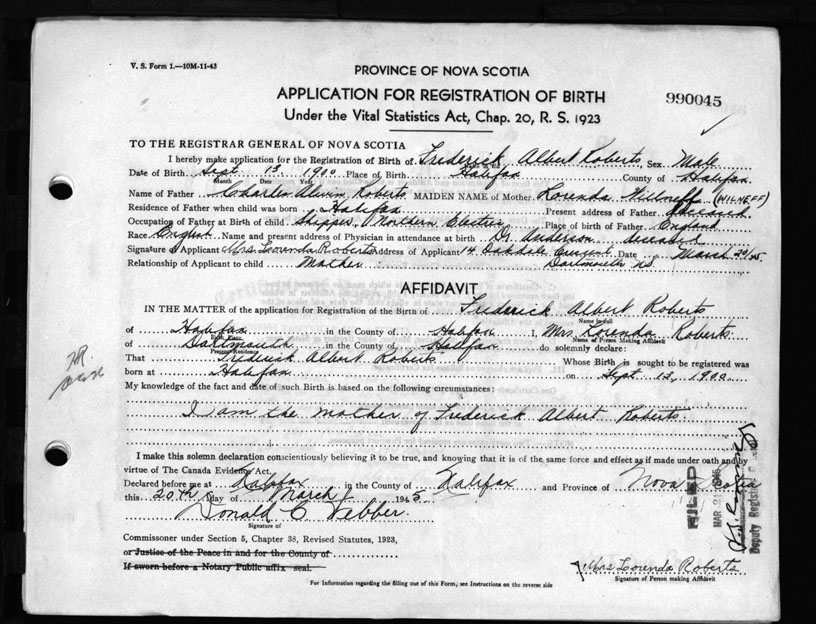 V. S. Form 1.—10M-11-43
PROVINCE OF NOVA SCOTIA
APPLICATION FOR REGISTRATION OF BIRTH
990045
Under the Vital Statistics Act, Chap. 20, R. S. 1923
TO THE REGISTRAR GENERAL OF NOVA SCOTIA
I hereby make application for the Registration of Birth of Frederick Albert Roberts Sex Male
Date of Birth Sept 13 1900 Place of Birth Halifax County of Halifax
Month Date Year
Name of Father Charles Alwin Roberts MAIDEN NAME of Mother Lorenda Willneff (WILNEFF)
Residence of Father when child was born Halifax Present address of Father deceased
Occupation of Father at Birth of child Shipper, Northern Electric Place of birth of Father England
Race English Name and present address of Physician in attendance at birth Dr. Anderson deceased
Signature of Applicant Mrs. Lorenda Roberts Address of Applicant 14 Oakdale Crescent Date March 20/45
Relationship of Applicant to child Mother Dartmouth NS
AFFIDAVIT
IN THE MATTER of the application for Registration of the Birth of Frederick Albert Roberts
Name in full
of Halifax in the County of Halifax I, Mrs. Lorenda Roberts
Birth Place Name of Person Making Affidavit
of Dartmouth in the County of Halifax do solemnly declare:
Present Residence
That Frederick Albert Roberts Whose Birth is sought to be registered was
born at Halifax on Sept. 13, 1900
My knowledge of the fact and date of such Birth is based on the following circumstances:
I am the mother of Frederick Albert Roberts
I make this solemn declaration conscientiously believing it to be true, and knowing that it is of the same force and effect as if made under oath and by
virtue of The Canada Evidence Act.
Declared before me at Halifax in the County of Halifax and Province of Nova Scotia
this 20th day of March 1945
Donald C Webber
Signature of
Commissioner under Section 5, Chapter 38, Revised Statutes, 1923,
or Justice of the Peace in and for the County of
If sworn before a Notary Public affix seal.
Mrs Lorenda Roberts
Signature of Person making Affidavit
For Information regarding the filling out of this Form, see Instructions on the reverse side
FILED
MAR 21 1945
Deputy Registrar